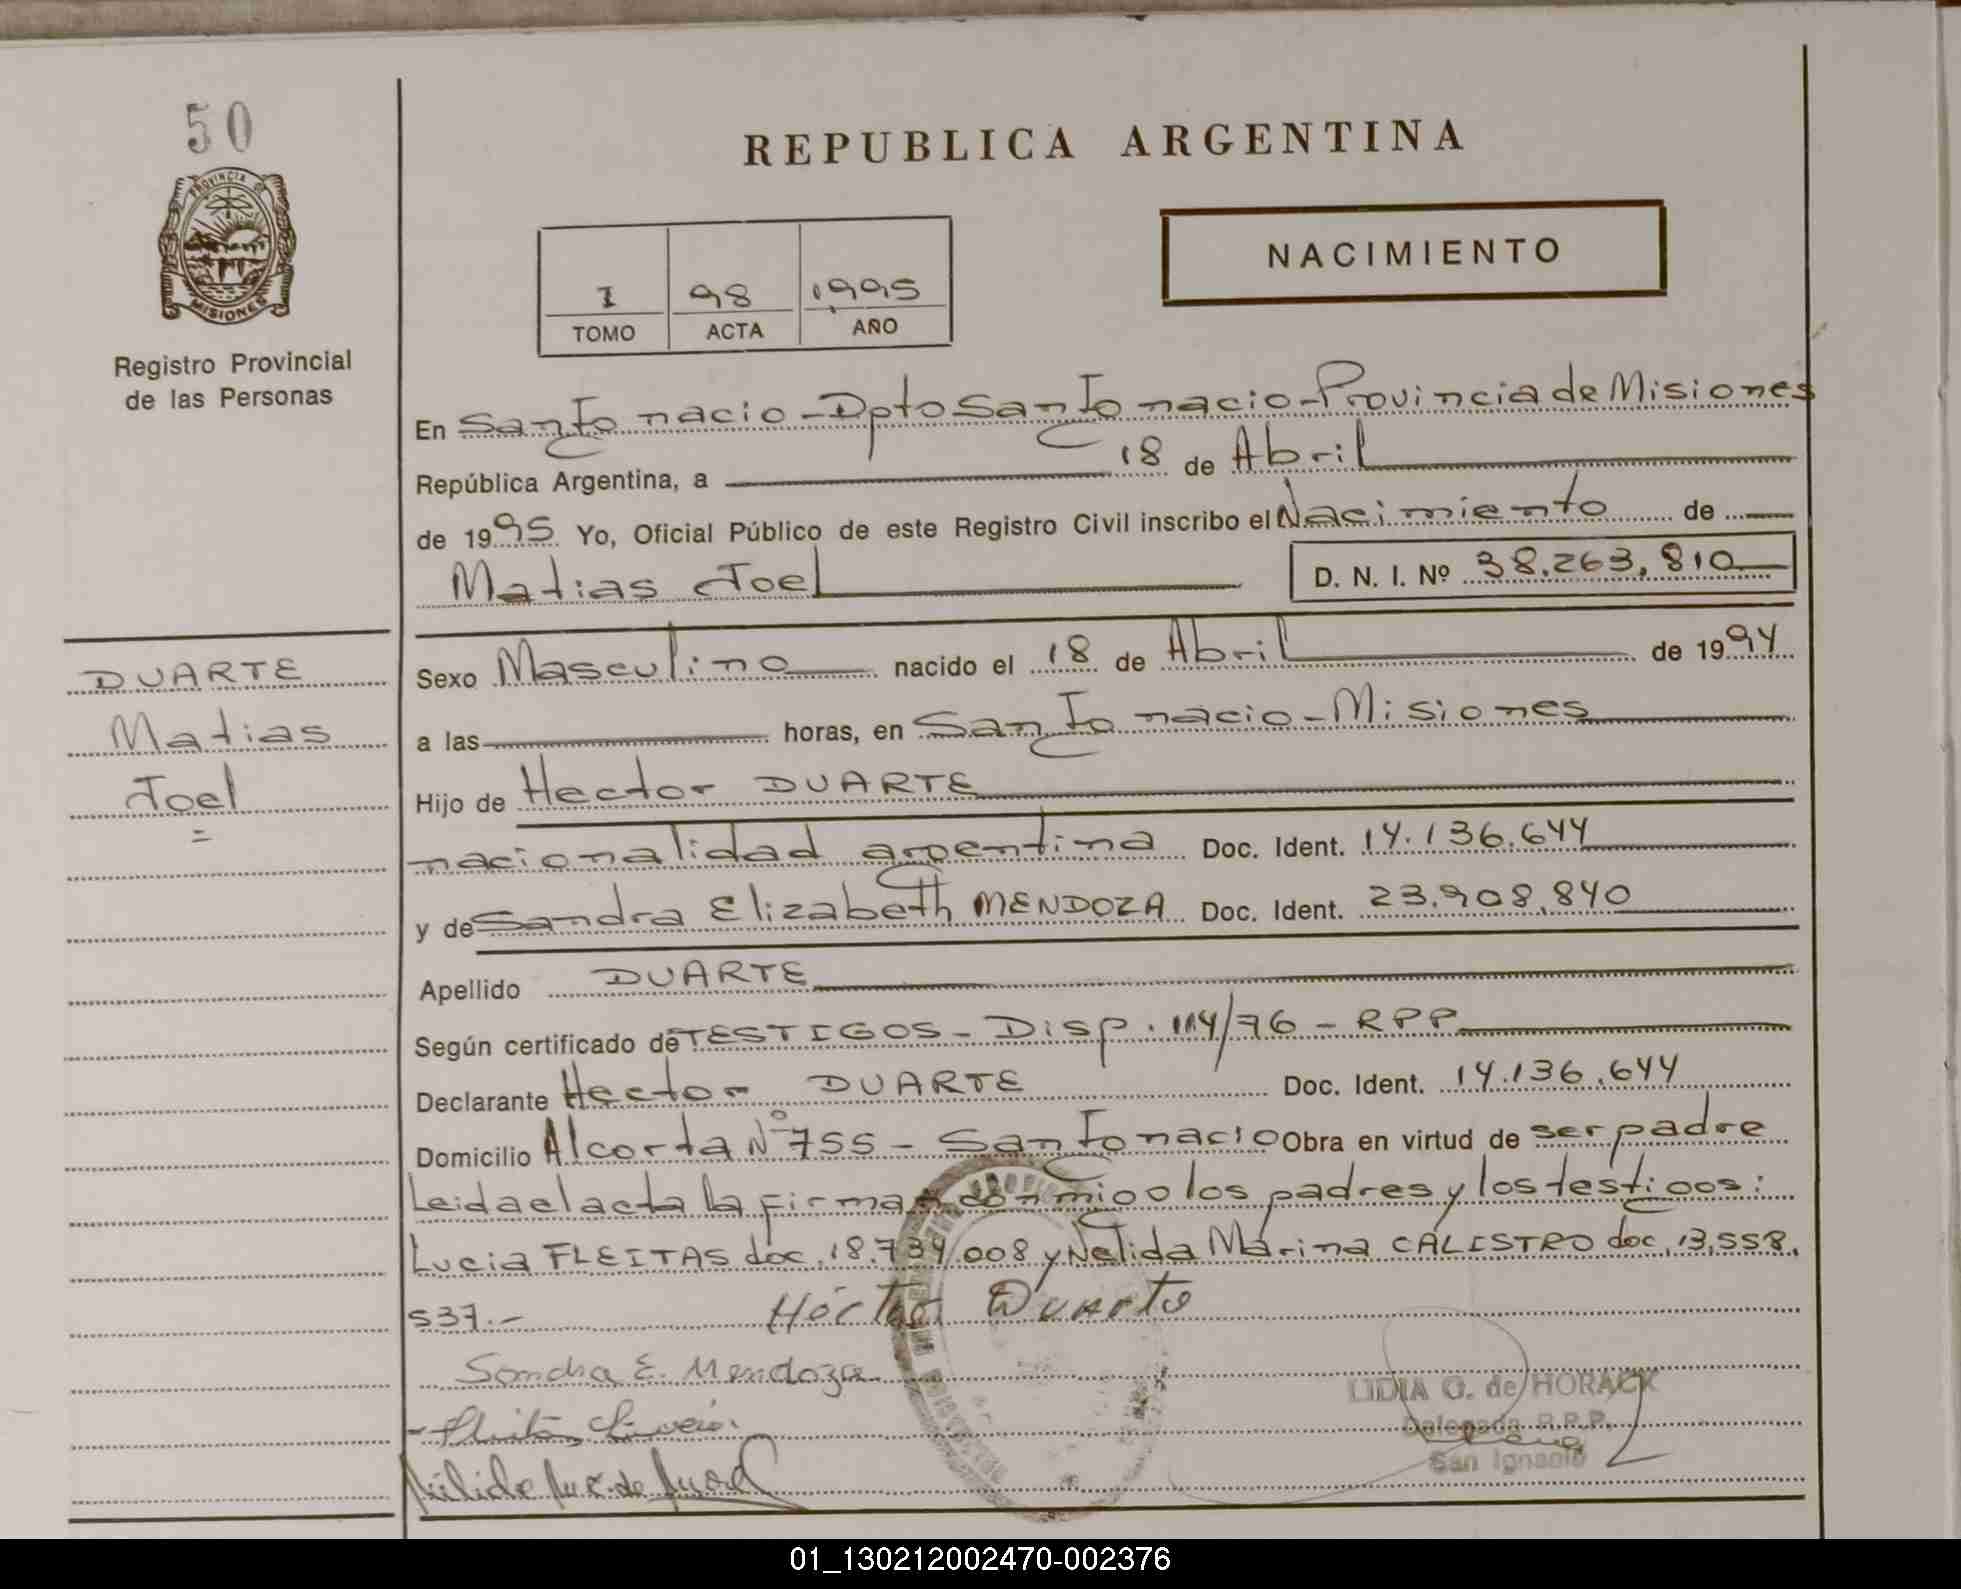 50
REPUBLICA ARGENTINA
PROVINCIA DE
MISIONES
Registro Provincial
de las Personas
I 98 1995
TOMO ACTA AÑO
NACIMIENTO
En San Ignacio - Dpto San Ignacio - Provincia de Misiones
República Argentina, a 18 de Abril
de 1995 Yo, Oficial Público de este Registro Civil inscribo el Nacimiento de
Matias Joel D. N. I. Nº 38.263.810
DUARTE
Matias
Joel
=
Sexo Masculino nacido el 18 de Abril de 1994
a las horas, en San Ignacio - Misiones
Hijo de Hector DUARTE
nacionalidad argentina Doc. Ident. 14.136.644
y de Sandra Elizabeth MENDOZA Doc. Ident. 23.908.840
Apellido DUARTE
Según certificado de TESTIGOS - Disp. 114/76 - RPP
Declarante Hector DUARTE Doc. Ident. 14.136.644
Domicilio Alcorta Nº 755 - San Ignacio Obra en virtud de ser padre
Leida el acta la firman conmigo los padres y los testigos:
Lucia FLEITAS doc. 18.734.008 y Nelida Marina CALISTRO doc. 13.558.
537.-
Héctor Duarte
Sandra E. Mendoza
LIDIA G. de HORACK
Delegada R.P.P.
San Ignacio
01_130212002470-002376